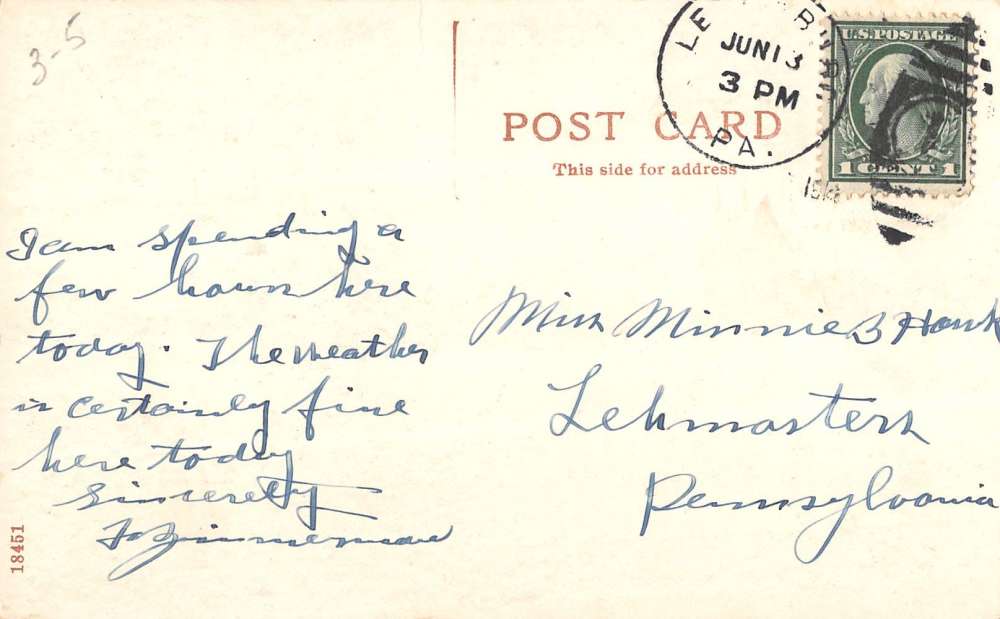 3-5
JUN 13
3 PM
PA.
U.S. POSTAGE
1 CENT 1
POST CARD
This side for address
I am spending a
few hours here
today. The weather
is certainly fine
here today
Sincerely
Zimmerman
Miss Minnie B Hawk
Lehmasters
Pennsylvania
18451